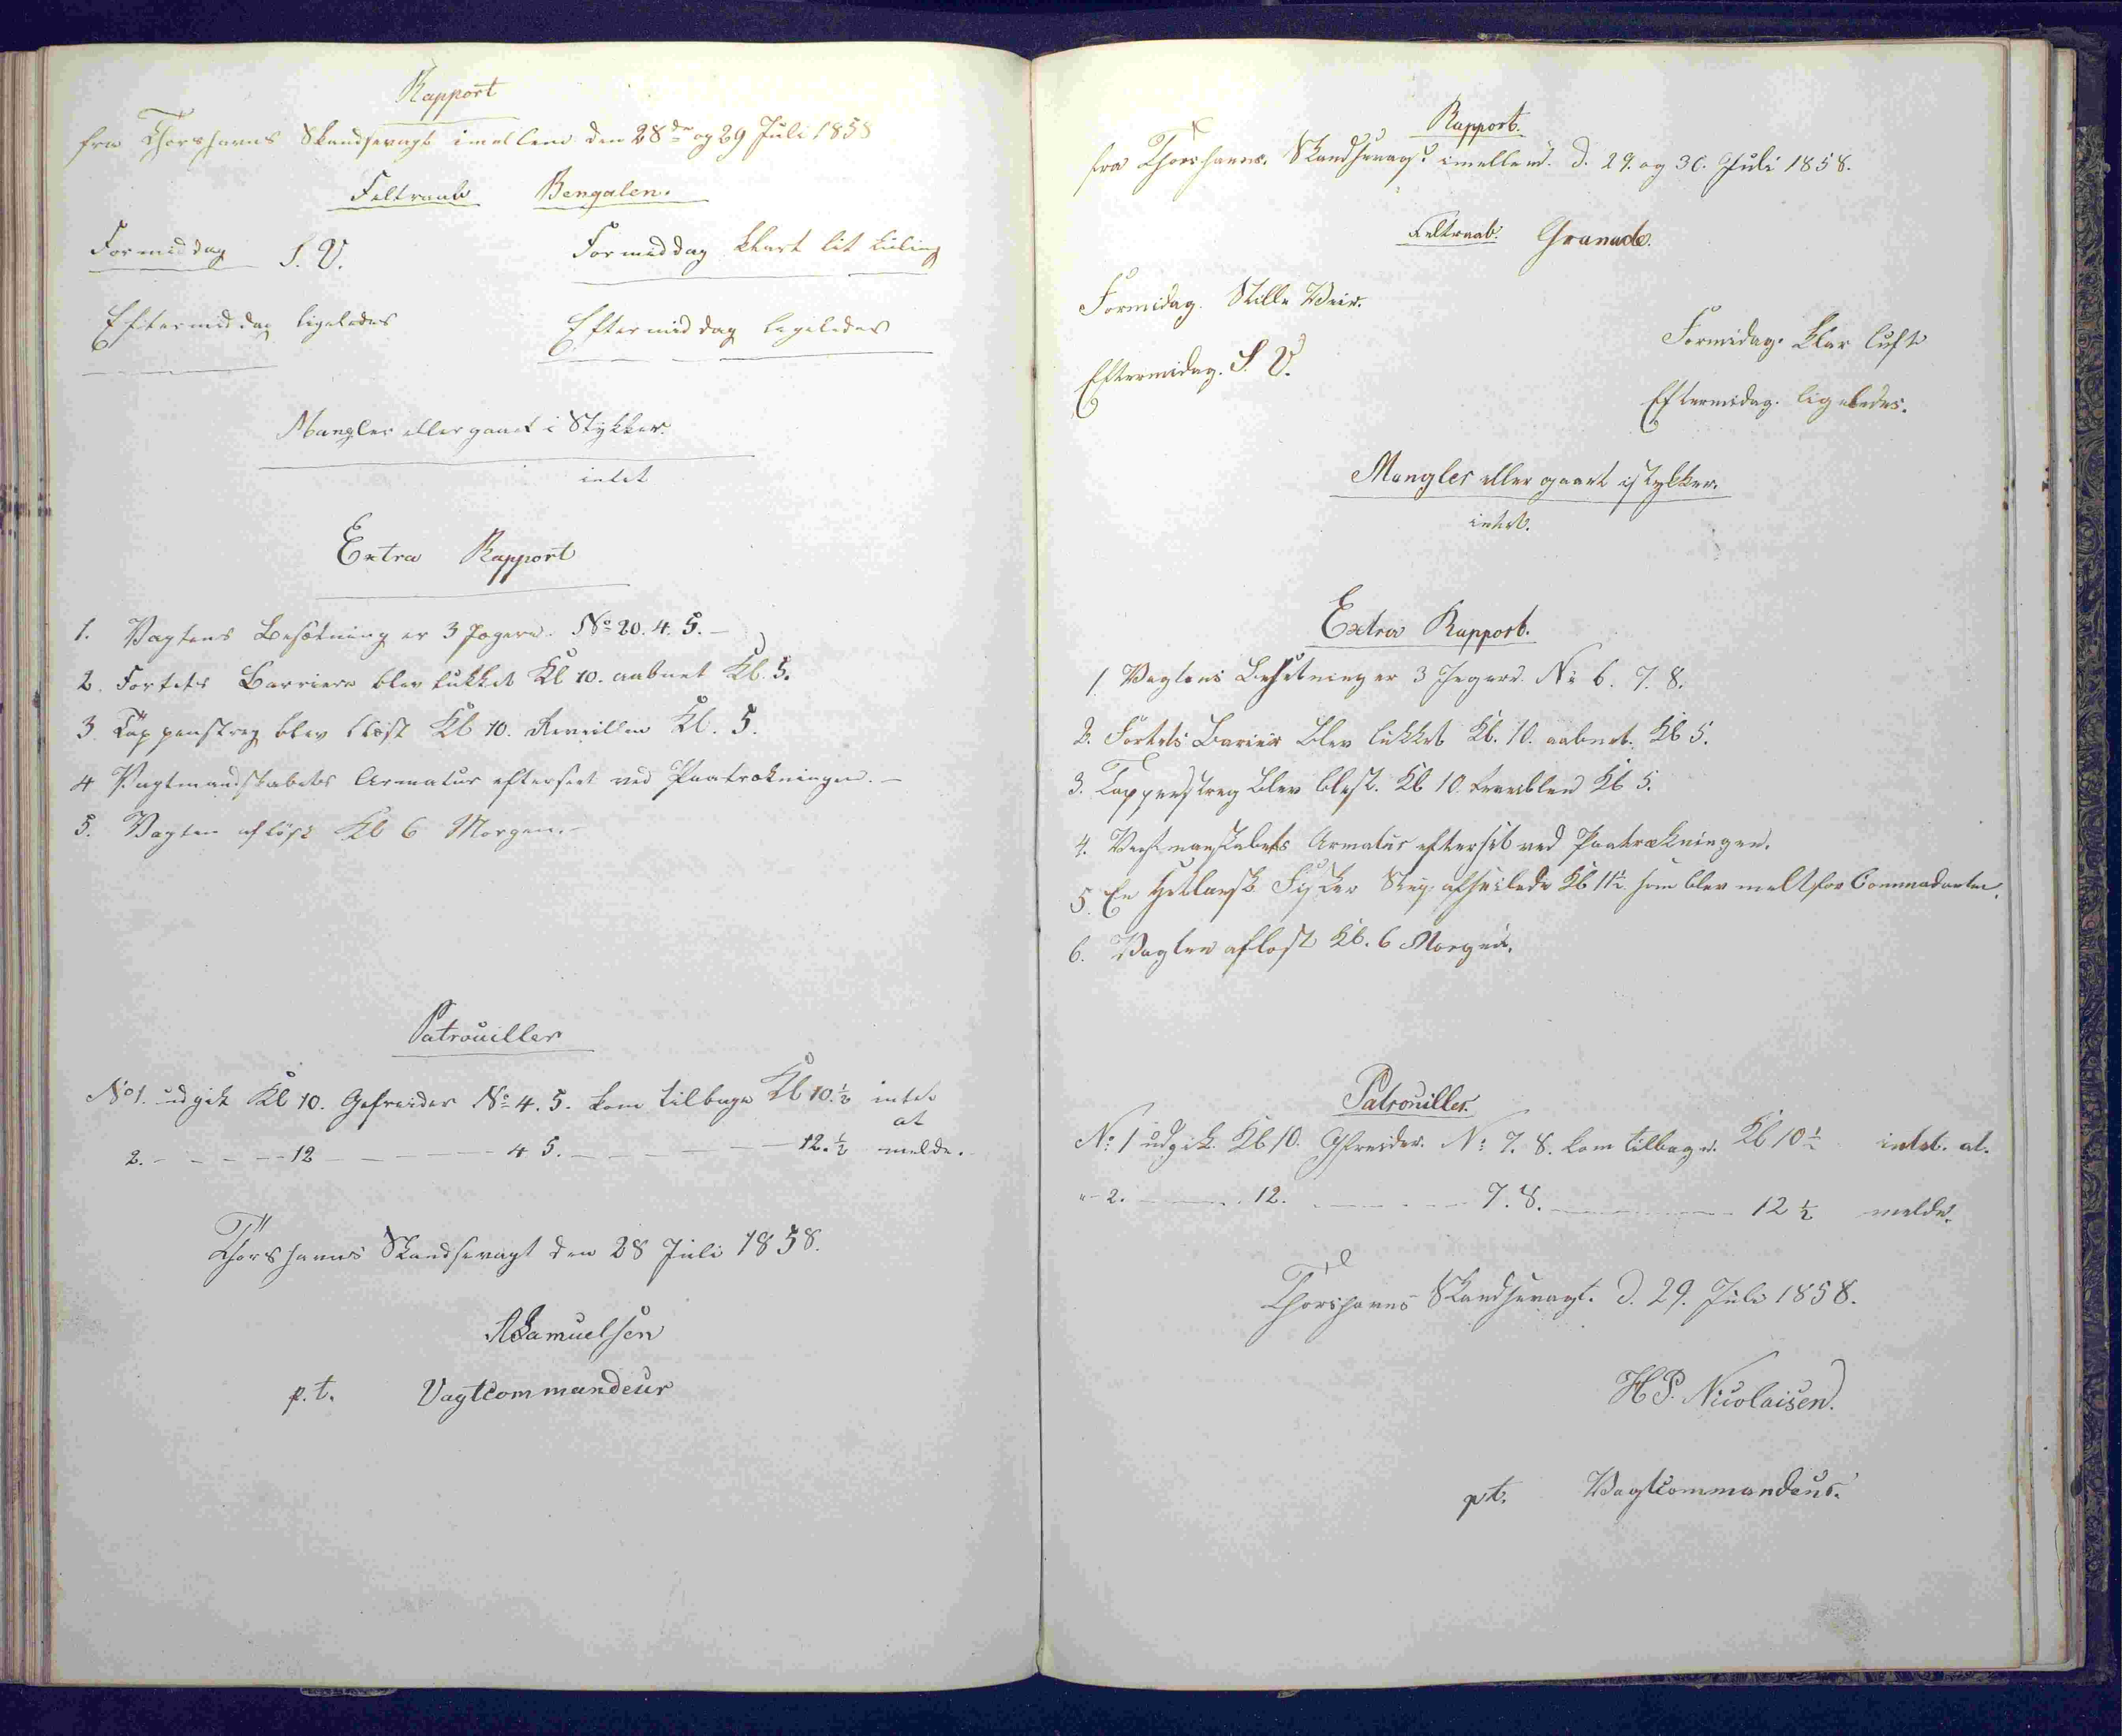 Rapport
fra Thorshavns Skandsevagt imellem den 28de og 29 Juli 1858
Feltraab Bengalen.
Formiddag S. V.
Formiddag klart lit kuling
Eftermiddag ligeledes
Eftermiddag ligeledes
Mangler eller gaaet i Stykker.
intet
Extra Rapport
1. Vagtens Besætning er 3 Jægere. No 20. 4. 5. —
2. Fortets Barriere blev lukket Kl 10. aabnet Kl. 5.
3. Tappenstreg blev blæst Kl 10. Reveillen Kl. 5.
4 Vagtmandskabets Armatur efterseet ved Paatrækningen. —
5. Vagten afløst Kl 6 Morgen. —
Patrouiller
No 1. udgik Kl 10. Gefreider No 4. 5. kom tilbage Kl 10 ½ intet
at
2. — — — 12 — — — 4 5. — — — 12. ½ melde.
Thorshavns Skandsevagt den 28 Juli 1858.
Samuelsen
p. t. Vagtcommandeur
Rapport.
fra Thorshavns. Skandsevagt imellem d. 29. og 30. Juli 1858.
Feltraab. Granade.
Formidag. Stille Veir.
Formidag. klar luft
Eftermidag. S. V.
Eftermidag. ligeledes.
Mangler eller gaaet istykker.
intet.
Extra Rapport.
1. Vagtens Besetning er 3 Jegere. No 6. 7. 8.
2. Fortets Barier blev lukket Kl. 10. aabnet. Kl 5.
3. Tappenstreg blev blest. Kl 10. Kl 5.
4. Armatur efterset ved Paatrækningen.
5. En Hetlansk Fisker Slup afseilede Kl 11½. som blev melt for Commadanten.
6. Vagten aflost Kl. 6 Morgen.
Patrouiller.
No 1 udgik. Kl 10. Gfreider. No 7. 8. kom tilbage. Kl 10 ½ intet. at.
" 2. — 12. — 7. 8. — 12 ½ melde.
Thorshavns Skandsevagt. d. 29. Juli 1858.
H P. Nicolaisen.
pt. Vagtcommandeur.